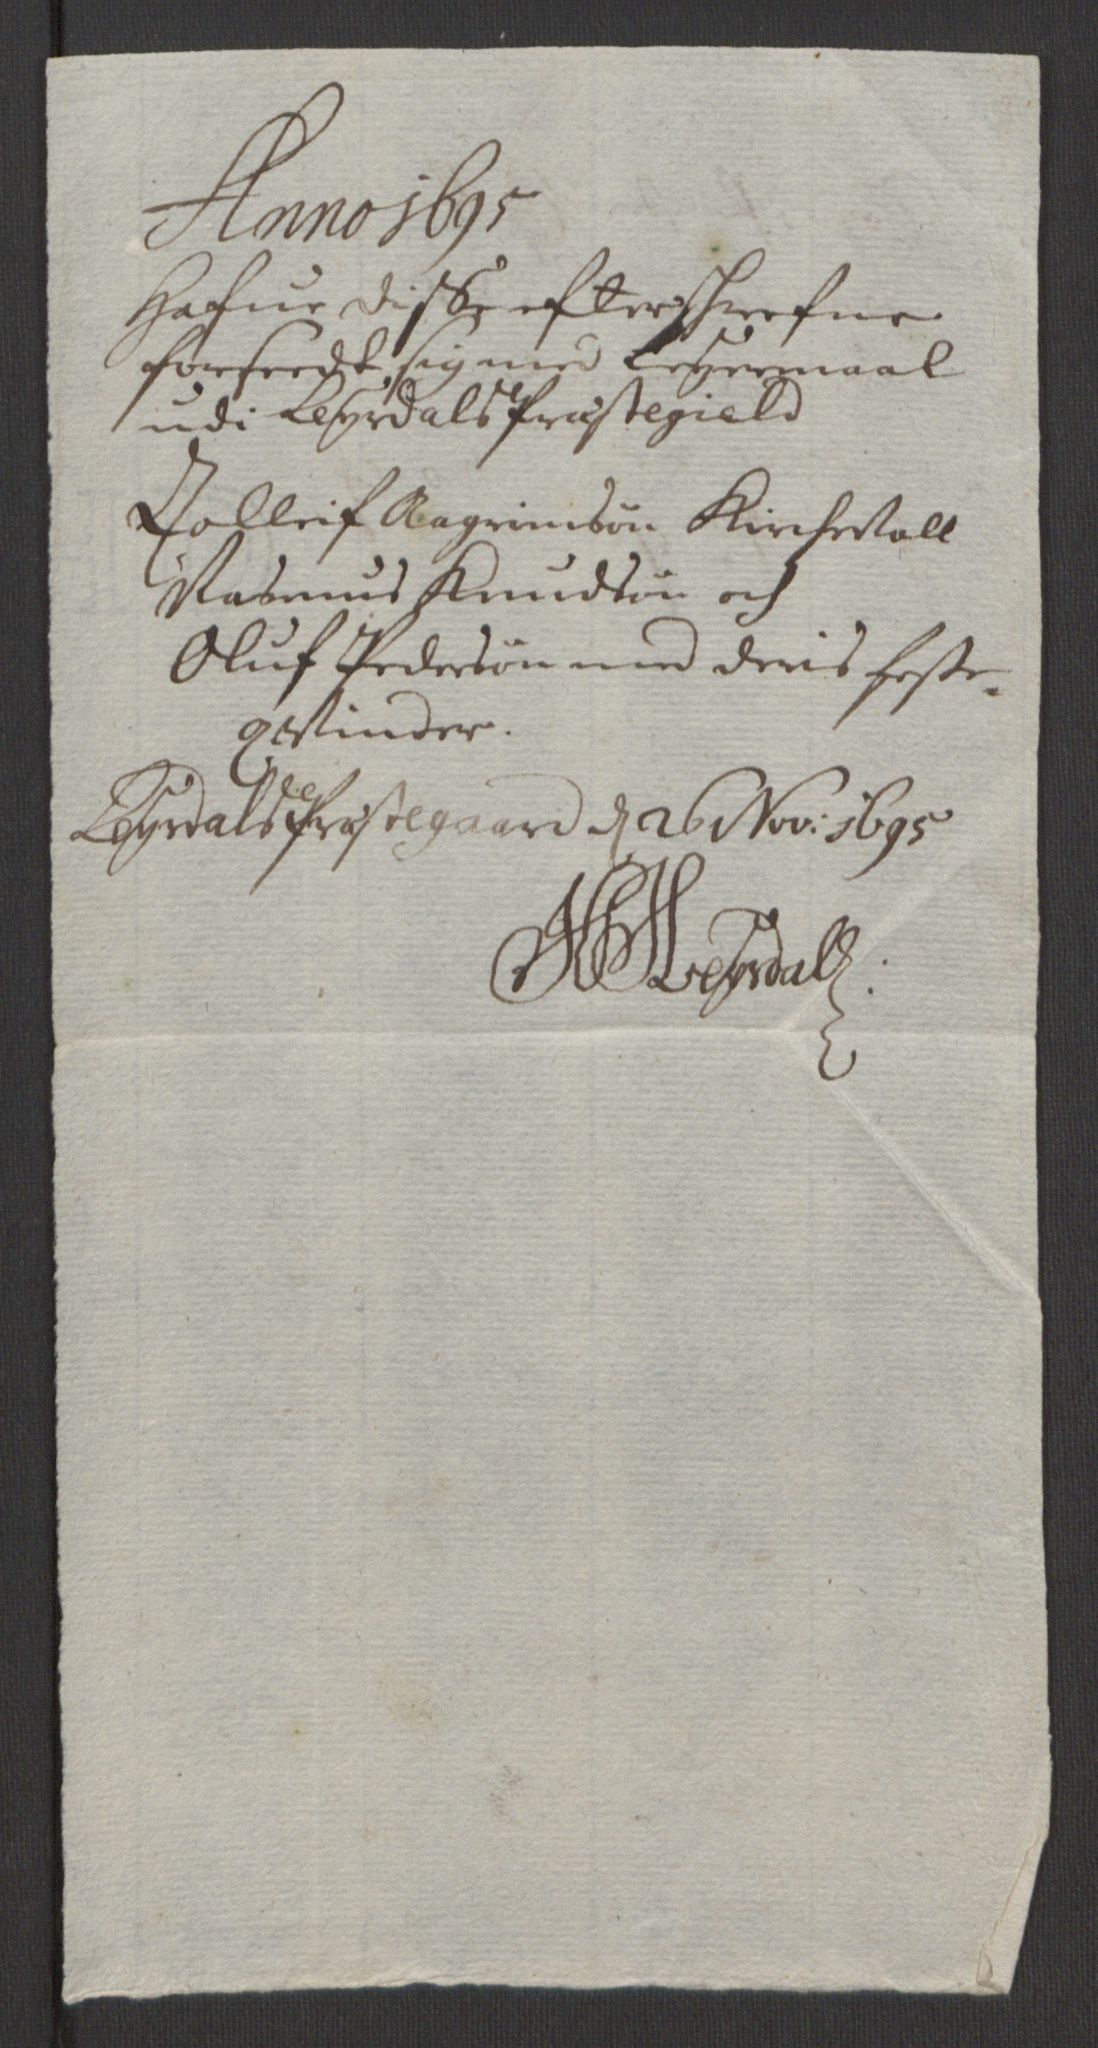 Anno 1695
Hafue disse efterschrefne
forseedt sig med Leyermaal
udi Leyrdals Præstegield
Tolleif Aagrimsøn Kirchevold
Rasmus Knudsøn och
Oluf Pedersøn med deris feste-
qvinder.
Leyrdals Præstegaard d 26 Nov: 1695
Leyrdall